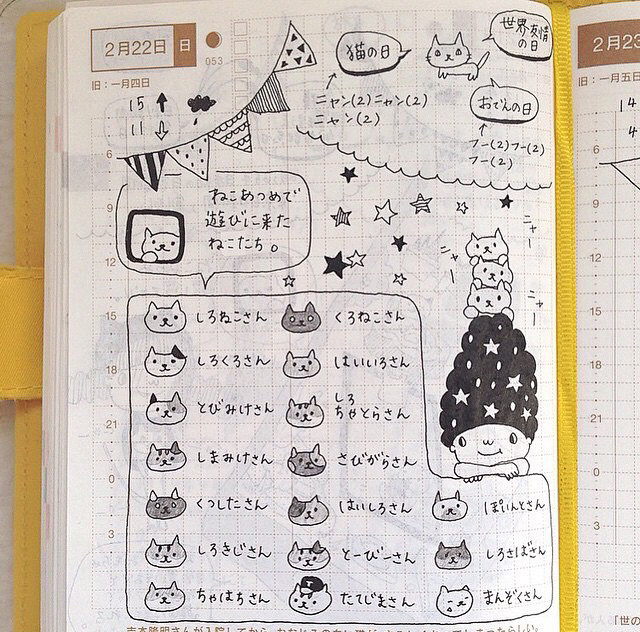 2月22日 日
053
旧:一月四日
15
11
猫の日
世界友情
の日
おでんの日
ニャン(2)ニャン(2)
ニャン(2)
フー(2)フー(2)
フー(2)
ねこあつめで
遊びに来た
ねこたち。
ニャー
ニャー
ニャー
しろねこさん
くろねこさん
しろくろさん
はいいろさん
とびみけさん
しろ
ちゃとらさん
しまみけさん
さびがらさん
くつしたさん
はいしろさん
ぽいんとさん
しろきじさん
とーびーさん
しろさばさん
ちゃはちさん
たてじまさん
まんぞくさん
6
9
12
15
18
21
0
3
2月23
旧:一月五日
14
6
9
12
15
18
21
0
3
「世の